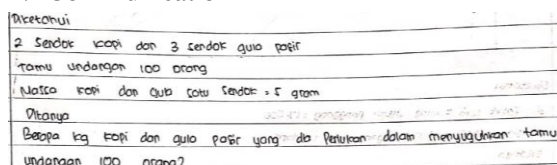 Diketahui
2 Sendok kopi dan 3 sendok gula pasir
Tamu undangan 100 orang
Massa kopi dan gula satu sendok = 5 gram
Ditanya
Berapa kg kopi dan gula pasir yang di Perlukan dalam menyuguhkan tamu
undangan 100 orang?